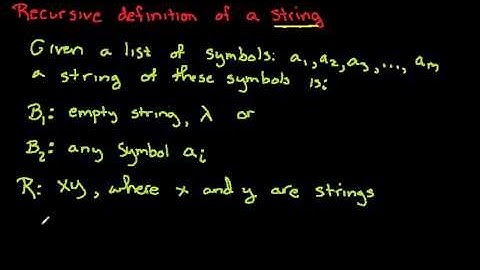 Recursive definition of a string
Given a list of symbols: a₁, a₂, a₃, ..., aₘ
a string of these symbols is:
B₁: empty string, λ or
B₂: any symbol aᵢ
R: xy, where x and y are strings